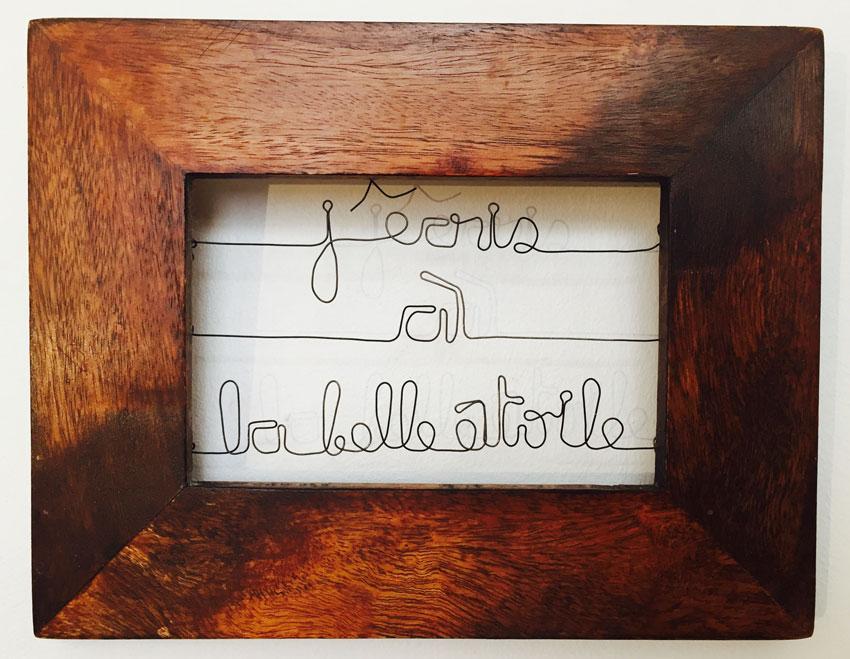 j'écris
à
la belle étoile